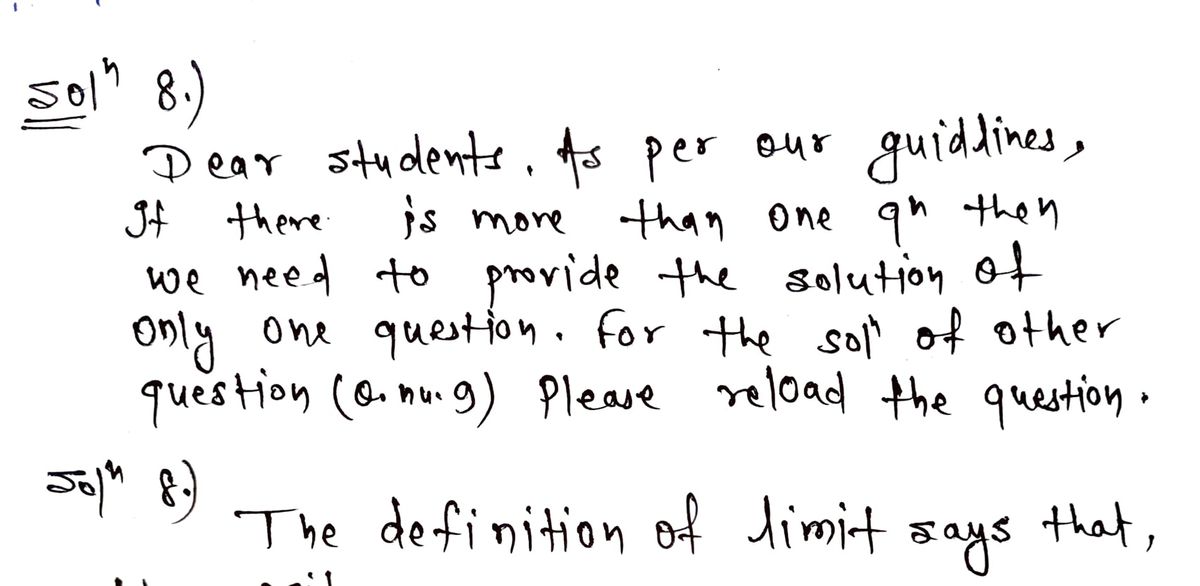 Solⁿ 8.)
Dear students, As per our guidlines,
If there is more than one qn then
we need to provide the solution of
only one question. For the solⁿ of other
question (Q. nu. 9) Please reload the question.
Solⁿ 8.)
The definition of limit says that,